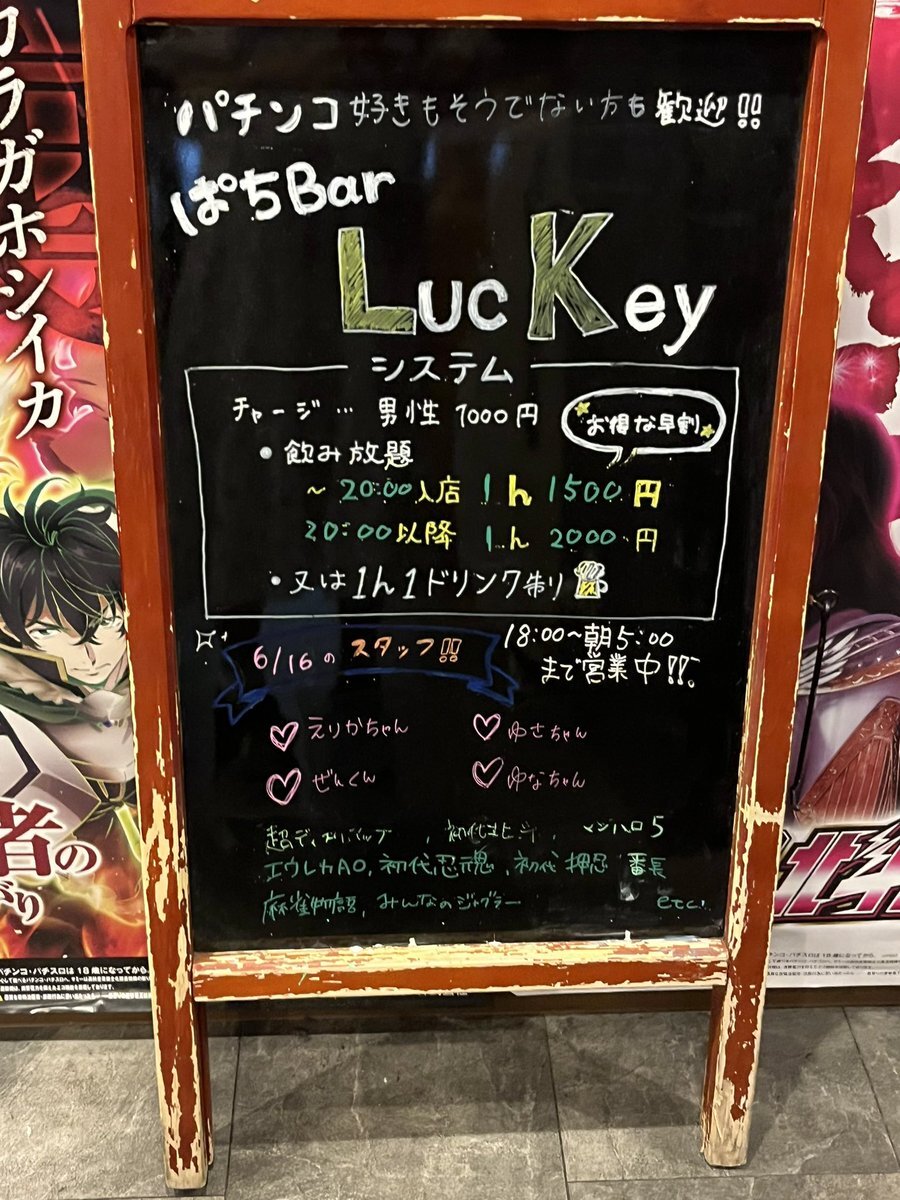 パチンコ好きもそうでない方も歓迎!!
ぱちBar
LucKey
システム
チャージ… 男性 1000円
お得な早割
・飲み放題
～20:00入店 1h 1500円
20:00以降 1h 2000円
・又は1h1ドリンク制り
6/16のスタッフ!!
18:00～朝5:00
まで営業中!!。
えりかちゃん
ゆさちゃん
ぜんくん
ゆなちゃん
初代北斗, マジハロ5
エウレカAO, 初代忍魂, 初代押忍番長
麻雀物語, みんなのジャグラー etc.
カラガホシイカ
者の
がり
パチンコ・パチスロは18歳になってから。
北斗